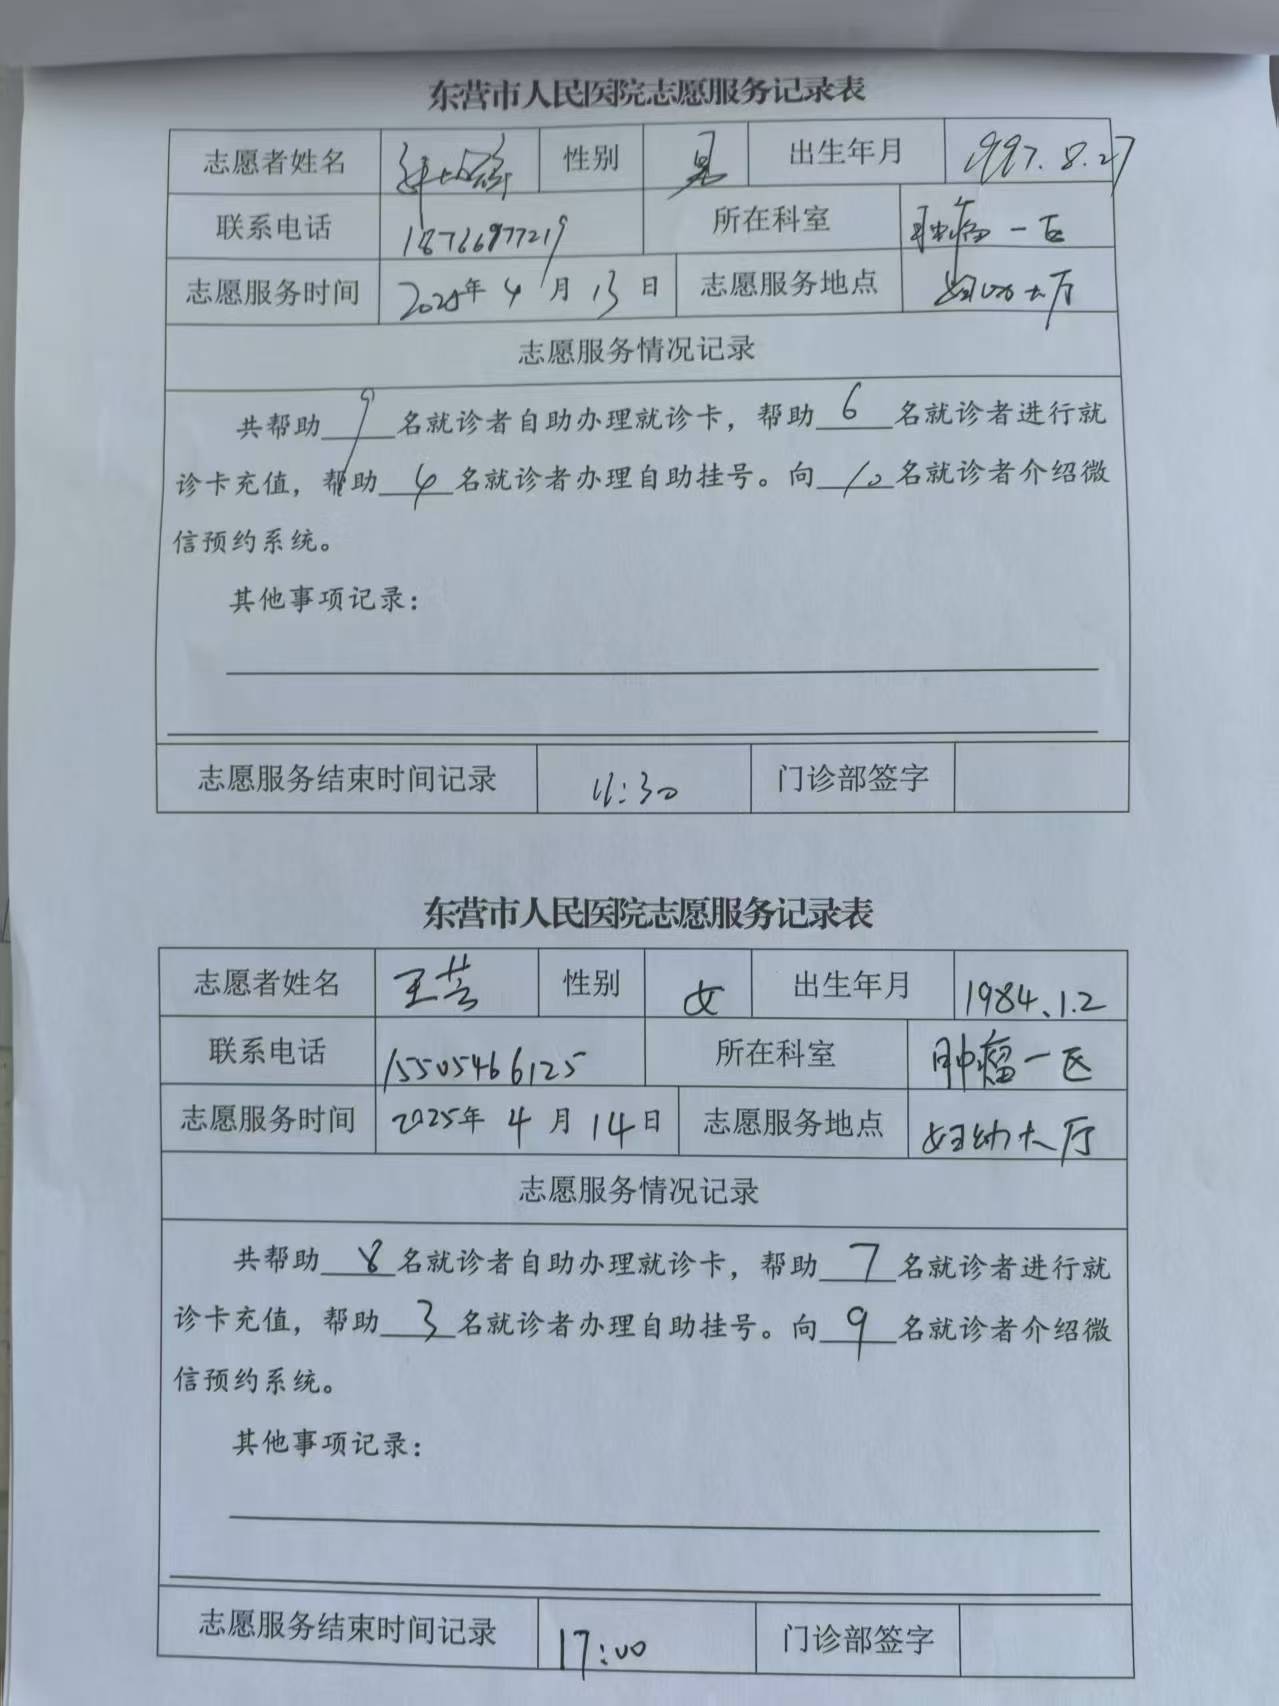 东营市人民医院志愿服务记录表
志愿者姓名 性别 男 出生年月 1997.8.27
联系电话 18766977219 所在科室 肿瘤一区
志愿服务时间 2025年 4 月 13 日 志愿服务地点 妇幼大厅
志愿服务情况记录
共帮助 9 名就诊者自助办理就诊卡，帮助 6 名就诊者进行就
诊卡充值，帮助 4 名就诊者办理自助挂号。向 10 名就诊者介绍微
信预约系统。
其他事项记录：
志愿服务结束时间记录 11:30 门诊部签字
东营市人民医院志愿服务记录表
志愿者姓名 王芸 性别 女 出生年月 1984.1.2
联系电话 15505466125 所在科室 肿瘤一区
志愿服务时间 2025年 4 月 14日 志愿服务地点 妇幼大厅
志愿服务情况记录
共帮助 8 名就诊者自助办理就诊卡，帮助 7 名就诊者进行就
诊卡充值，帮助 3 名就诊者办理自助挂号。向 9 名就诊者介绍微
信预约系统。
其他事项记录：
志愿服务结束时间记录 17:00 门诊部签字